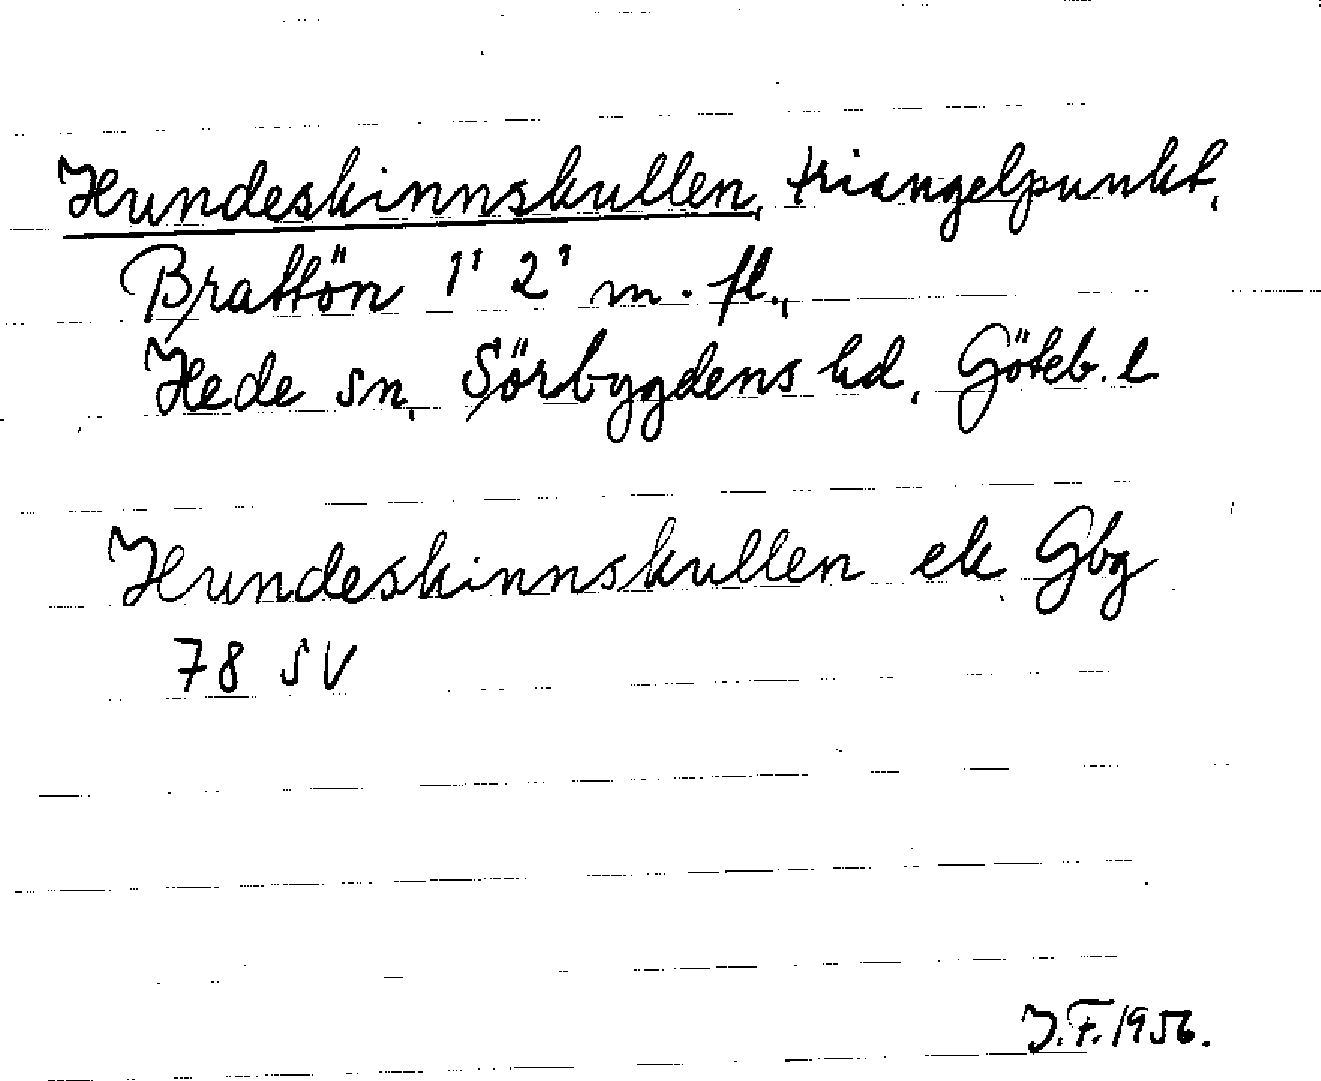 Hundeskinnskullen, triangelpunkt,
Brattön 1' 2' m. fl.,
Hede sn, Sörbygdens hd, Göteb. l
Hundeskinnskullen ek Gbg
78 SV
J.F. 1956.